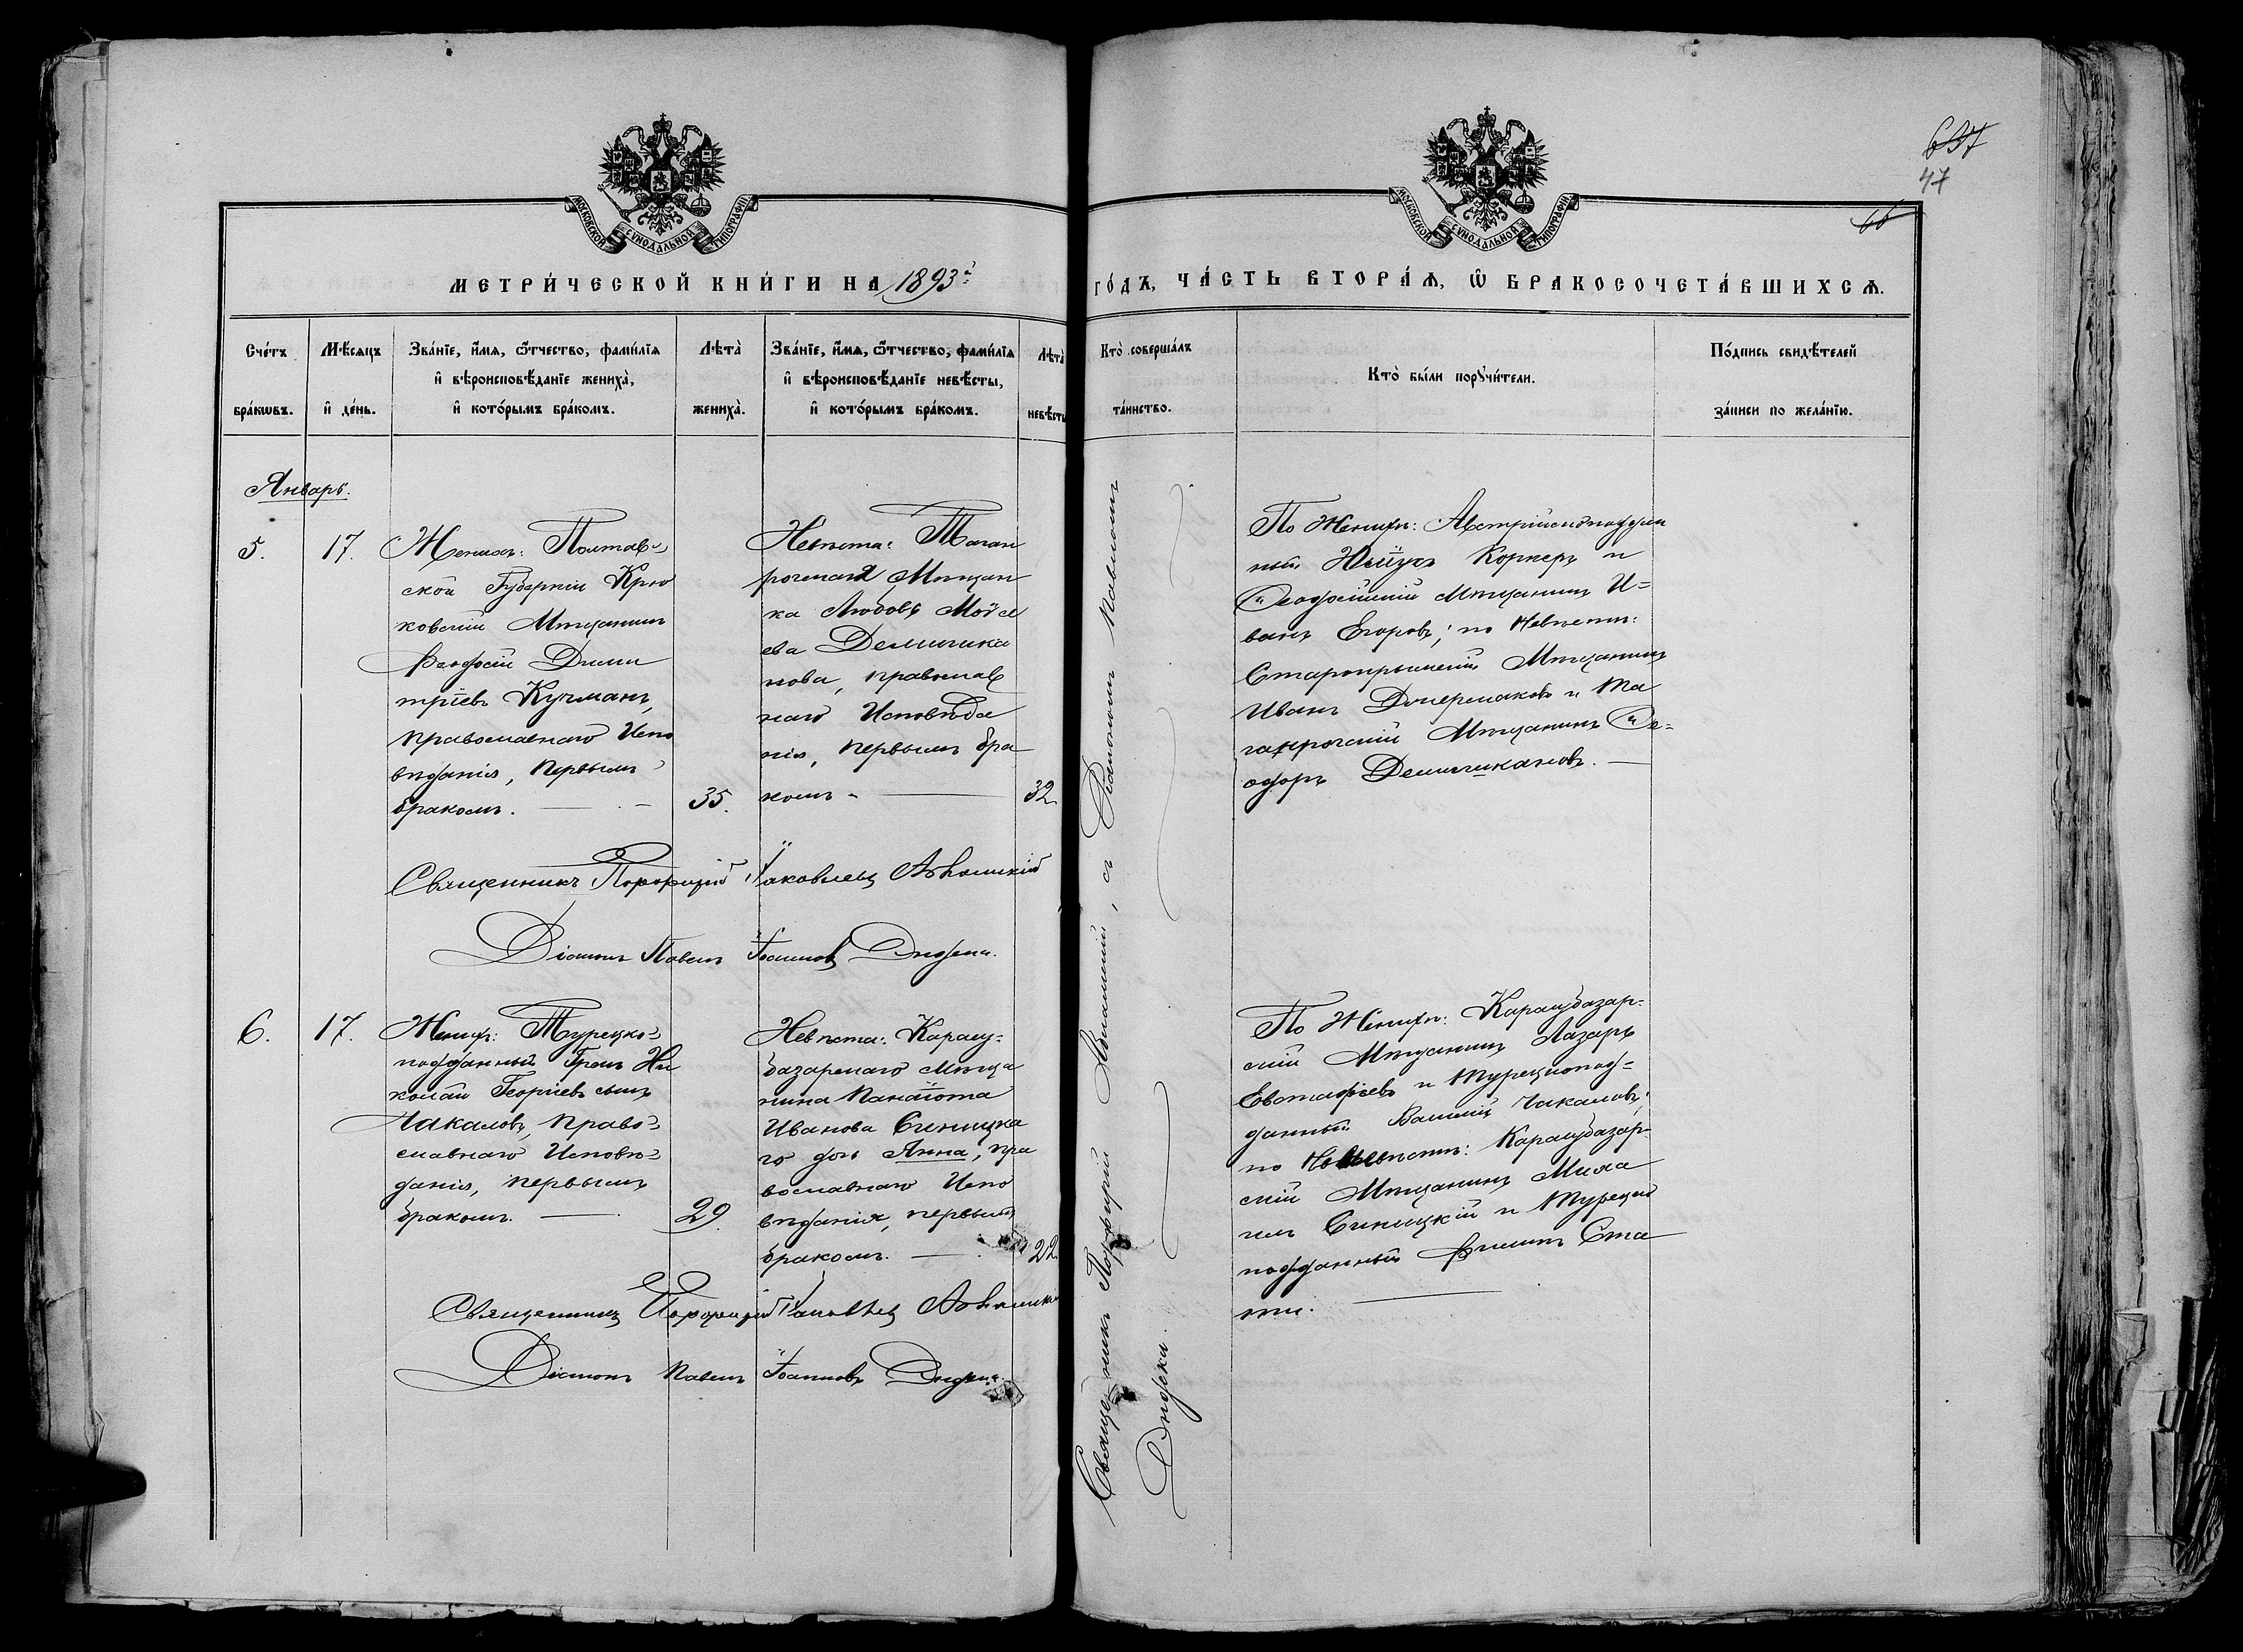 637
47
66
МОСКОВСКОЙ СѴНОДАЛЬНОЙ ТИПОГРАФІИ
МОСКОВСКОЙ СѴНОДАЛЬНОЙ ТИПОГРАФІИ
МЕТРИ́ЧЕСКОЙ КНИ́ГИ НА 1893й
ГО́ДЪ, ЧА́СТЬ ВТОРА́Ѧ, Ѽ БРАКОСОЧЕТА́ВШИХСѦ.
Сче́тъ бра́кѡвъ.
Мѣ́сѧцъ и҆ де́нь.
Зва́нїе, и҆́мѧ, ѻ҆́тчество, фами́лїѧ
и҆ вѣроисповѣ́данїе жениха̀,
и҆ кото́рымъ бра́комъ.
Лѣта̀ жениха̀.
Зва́нїе, и҆́мѧ, ѻ҆́тчество, фами́лїѧ
и҆ вѣроисповѣ́данїе невѣ́сты,
и҆ кото́рымъ бра́комъ.
Лѣта̀ невѣ́сты
Кто̀ соверша́лъ
та́инство.
Кто̀ бы́ли порꙋчи́тели.
По́дпись свидѣ́телей
за́писи по жела́нїю.
Январь.
5.
17.
Женихъ: Полтав-
ской Губерніи Крю
ковскій Мѣщанинъ
Феодосій Дими
тріевъ Кучманъ,
православнаго Испо
вѣданія, первымъ
бракомъ.
35.
Невѣста: Таган
рогская Мѣщан
ка Любовь Моѵсе
ева
нова, православ
наго Исповѣда
нія, первымъ бра
комъ
32
По Женихѣ: Австрійскоподдан
ный Корнеръ и
Ѳеодосійскій Мѣщанинъ И=
ванъ Егоровъ; по Невѣстѣ:
Старокрымскій Мѣщанинъ
Иванъ и Та
ганрогскій Мѣщанинъ Ѳе=
одоръ
Священникъ Порфирій Іаковлевъ
Діаконъ Павелъ Іоанновъ
6.
17.
Женихъ: Турецко-
подданный Грекъ Ни
колай Георгіевъ сынъ
Чакаловъ, Право-
славнаго Исповѣ-
данія, первымъ
бракомъ.
29.
Невѣста: Карасу=
базарскаго Мѣща
нина Панаіота
Иванова Синицка
го дочь Анна, пра
вославнаго Испо
вѣданія, первымъ
бракомъ.
22.
По Женихѣ: Карасубазар-
скій Мѣщанинъ Лазарь
Евстафіевъ и Турецкопод=
данный Василій Чакаловъ;
по Невѣстѣ: Карасубазар
скій Мѣщанинъ Миха
илъ Синицкій и Турецко
подданный Филиппъ Ста
ти.
Священникъ Порфирій Іаковлевъ
Діаконъ Павелъ Іоанновъ
Священникъ Порфирій , съ Діакономъ Павломъ